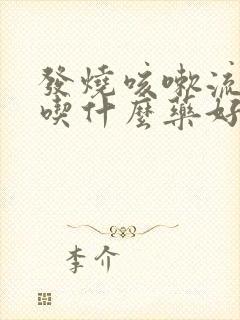 發燒咳嗽流
喫什麼藥好
李介